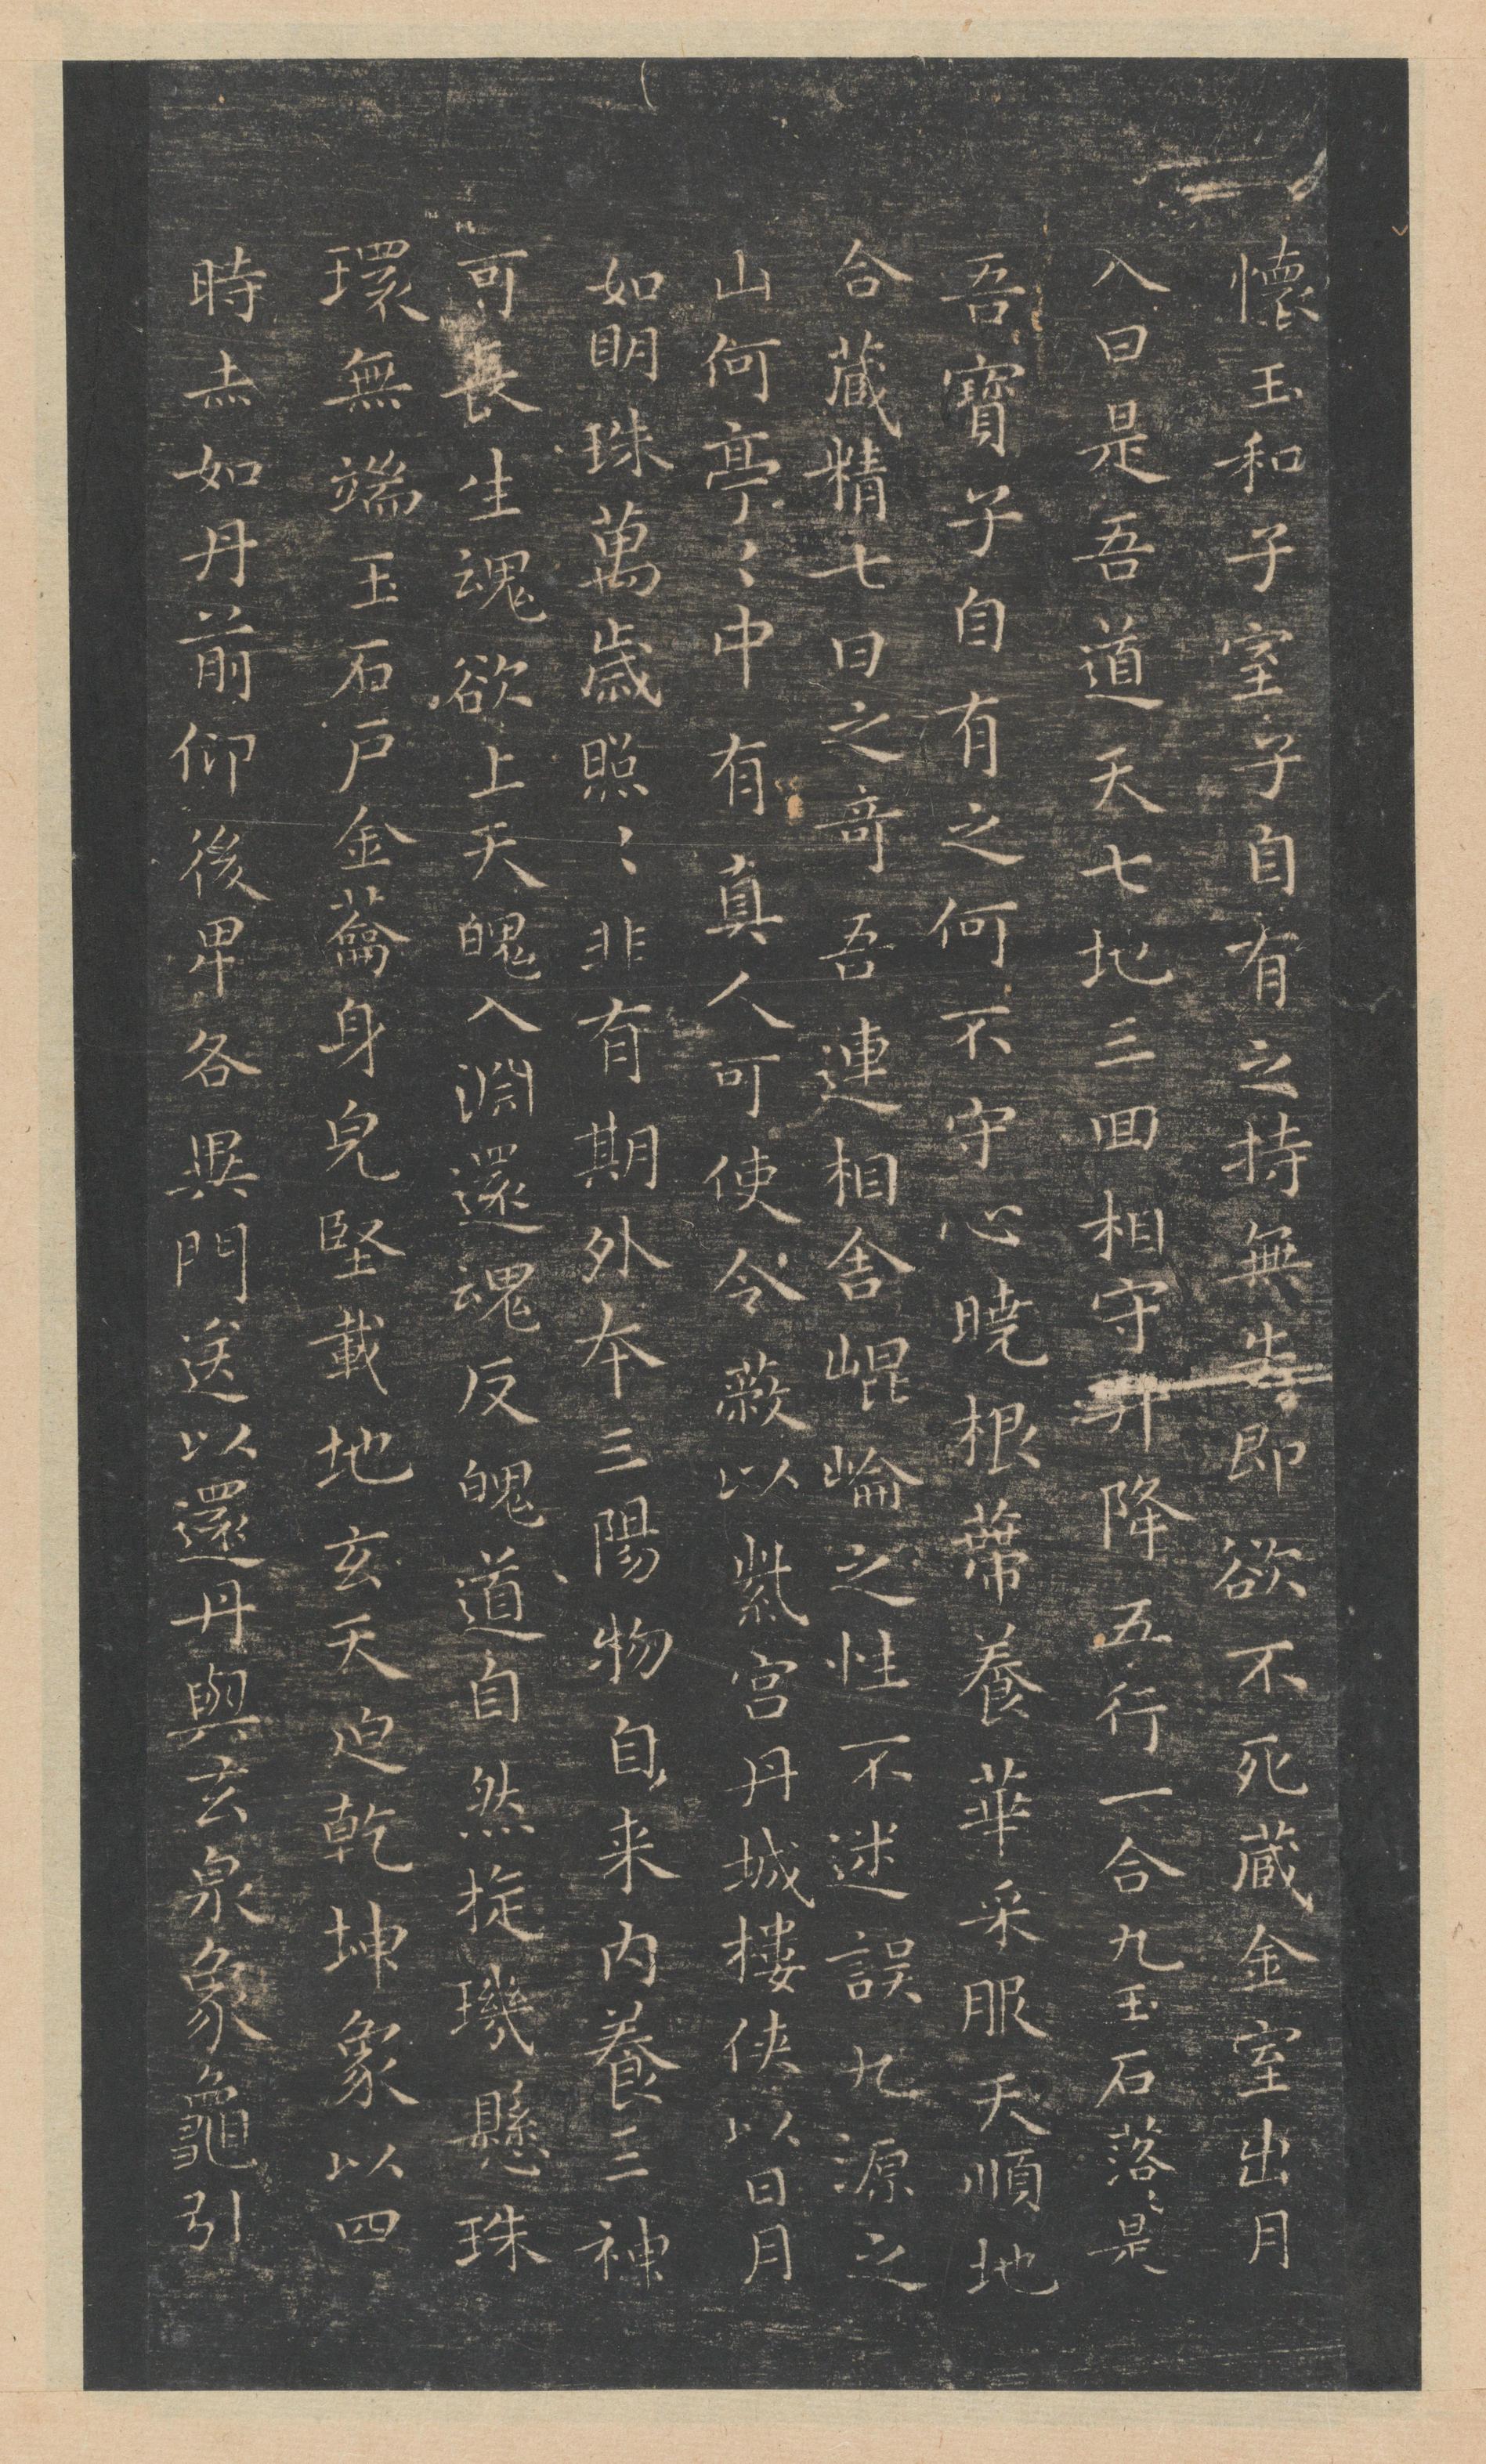 懷玉和子室子自有之持無失即欲不死藏金室出月
入日是吾道天七地三回相守升降五行一合九玉石落〻是
吾寶子自有之何不守心曉根蔕養華采服天順地
合藏精七日之奇吾連相舍崐崘之性不迷誤九源之
山何亭〻中有真人可使令蔽以紫宮丹城樓俠以日月
如明珠萬歲照〻非有期外本三陽物自来內養三神
可長生魂欲上天魄入淵還魂反魄道自然㧞璣懸珠
環無端玉石戶金蘥身皃堅載地玄天迫乾坤象以四
時赤如丹前仰後卑各異門送以還丹與玄泉象龜引